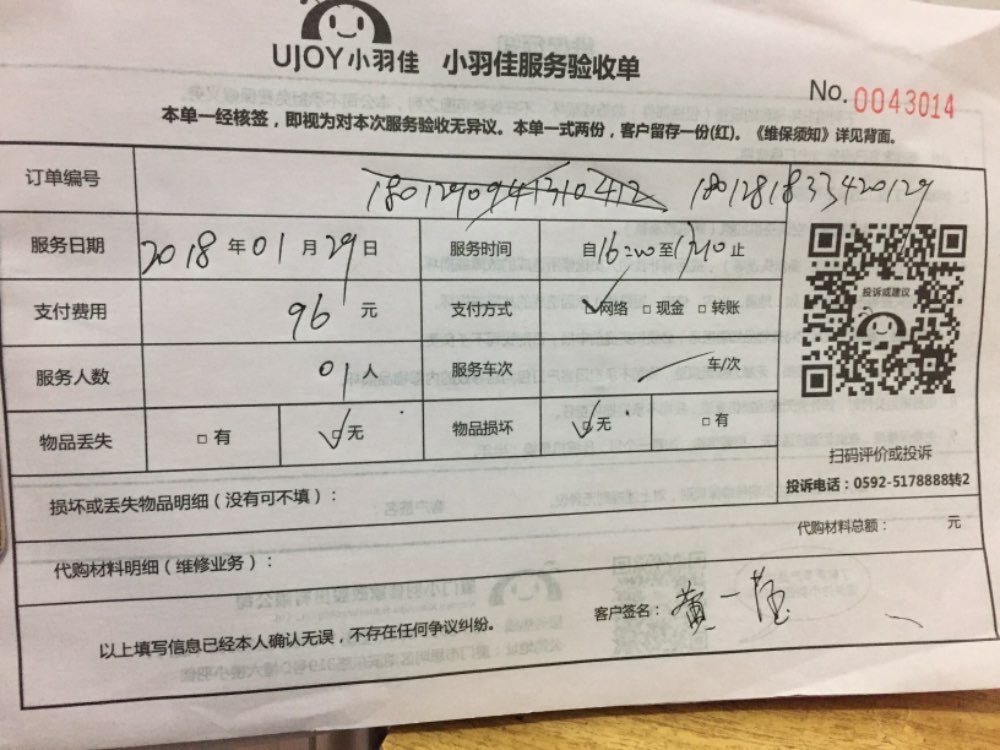 UJOY小羽佳 小羽佳服务验收单
No. 0043014
本单一经核签，即视为对本次服务验收无异议。本单一式两份，客户留存一份(红)。《维保须知》详见背面。
订单编号 1801290941310412 1801281833420129
服务日期 2018 年 01 月 29 日 服务时间 自16:00至17:10止
投诉或建议
支付费用 96 元 支付方式 ☑网络 □现金 □转账
服务人数 01 人 服务车次 / 车/次
物品丢失 □有 ☑无 物品损坏 ☑无 □有
扫码评价或投诉
投诉电话：0592-5178888转2
损坏或丢失物品明细（没有可不填）：
代购材料总额： 元
代购材料明细（维修业务）：
客户签名：黄一
以上填写信息已经本人确认无误，不存在任何争议纠纷。